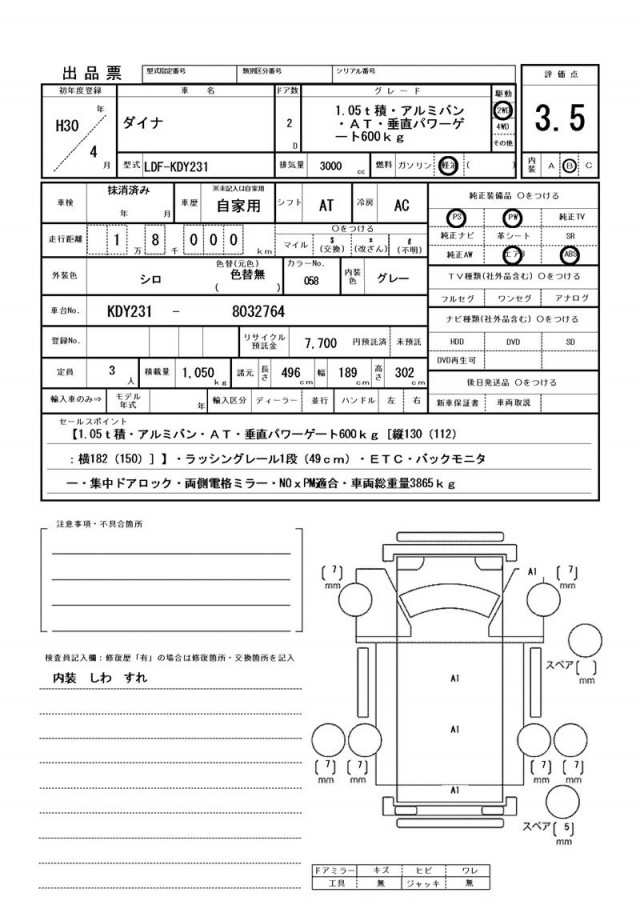 出品票 型式指定番号 類別区分番号 シリアル番号 評価点
初年度登録 車名 ドア数 グレード 駆動 3.5
H30 年 4 月 ダイナ 2 D 1.05t積・アルミバン 2WD
・AT・垂直パワーゲ 4WD
ート600kg その他
型式 LDF-KDY231 排気量 3000 cc 燃料 ガソリン 軽油 ( ) 内装 A B C
車検 抹消済み 年 月 車歴 ※未記入は自家用 自家用 シフト AT 冷房 AC 純正装備品 ○をつける
走行距離 1 万 8 千 0 0 0 km ○をつける マイル $ (交換) * (改ざん) # (不明)
PS PW 純正TV
純正ナビ 革シート SR
純正AW エアB ABS
外装色 シロ 色替(元色) 色替無 ( ) カラーNo. 058 内装色 グレー
TV種類(社外品含む) ○をつける
フルセグ ワンセグ アナログ
車台No. KDY231 - 8032764
ナビ種類(社外品含む) ○をつける
登録No. リサイクル預託金 7,700 円預託済 未預託
HDD DVD SD
DVD再生可
定員 3 人 積載量 1,050 kg 諸元 長さ 496 cm 幅 189 cm 高さ 302 cm
後日発送品 ○をつける
輸入車のみ⇒ モデル年式 年 輸入区分 ディーラー 並行 ハンドル 左 右
新車保証書 車両取説
セールスポイント
【1.05t積・アルミバン・AT・垂直パワーゲート600kg[縦130(112)
:横182(150)]】・ラッシングレール1段(49cm)・ETC・バックモニタ
ー・集中ドアロック・両側電格ミラー・NOxPM適合・車両総重量3865kg
注意事項・不具合箇所
検査員記入欄:修復歴「有」の場合は修復箇所・交換箇所を記入
内装 しわ すれ
[7] mm A1 [7] mm
スペア[ ] mm
A1
A1
[7] mm [7] mm [7] mm [7] mm
A1
スペア[5] mm
ドアミラー キズ ヒビ ワレ
工具 無 ジャッキ 無